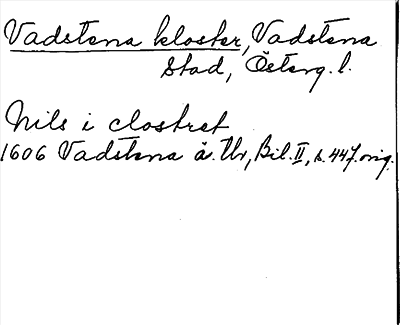 Vadstena kloster, Vadstena
Stad, Österg. l.
Nils i clostret
1606 Vadstena ä. Tb, Bil. II, s. 447. orig.